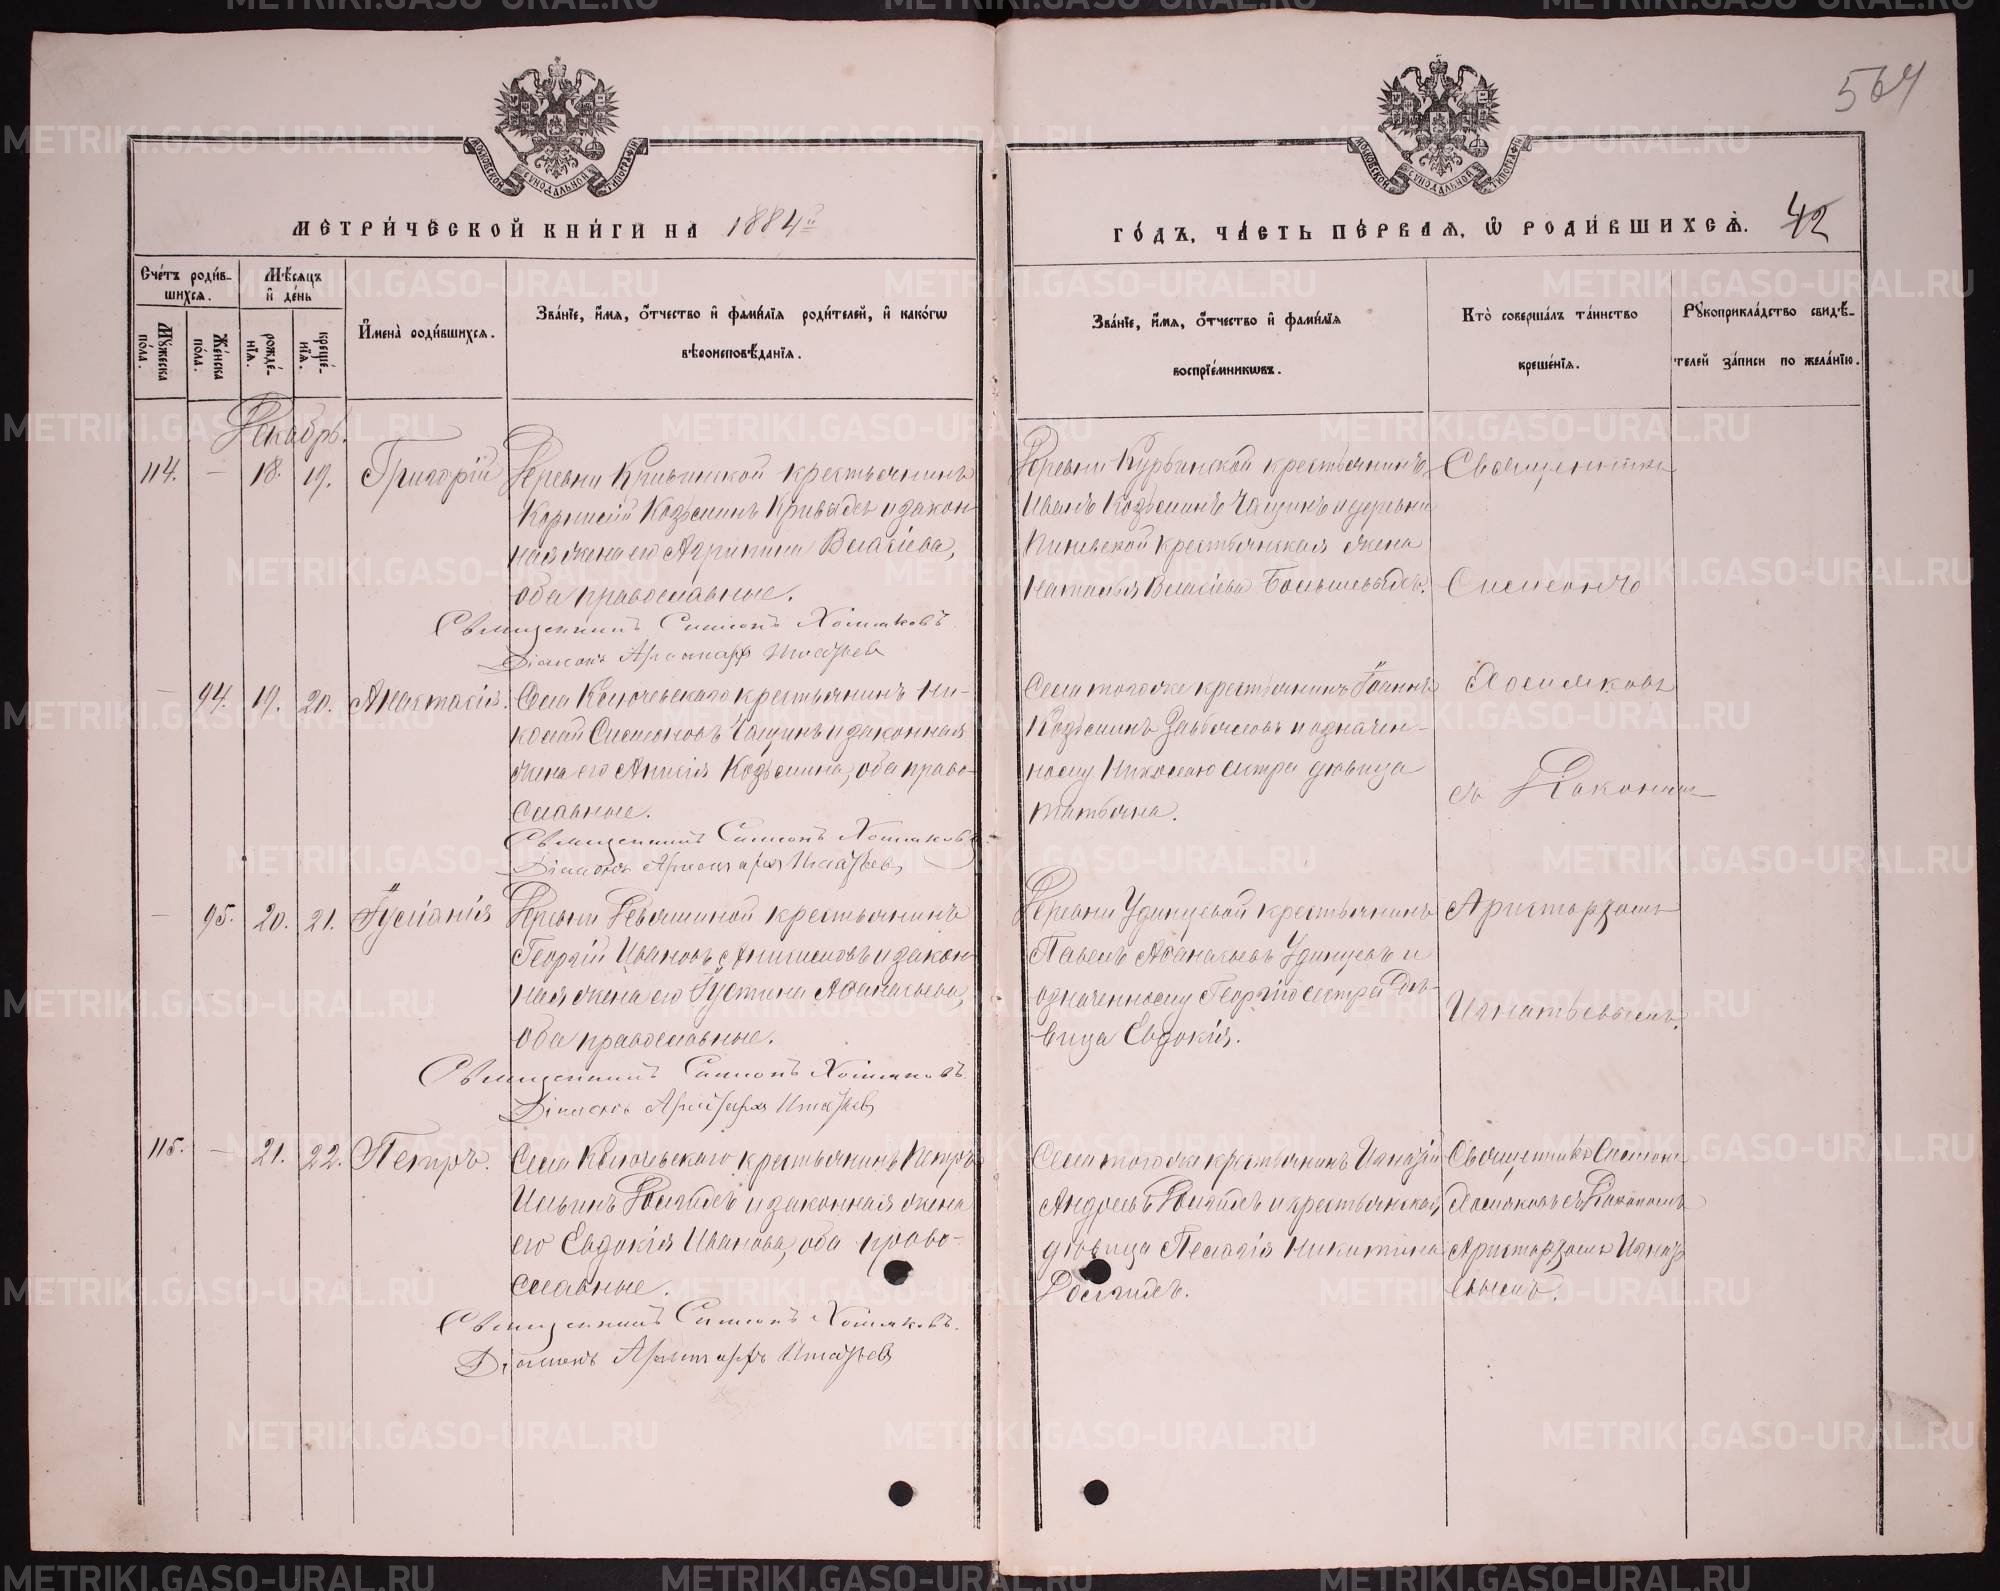 564
МОСКОВСКОЙ СѴНОДАЛЬНОЙ ТИПОГРАФІИ
МОСКОВСКОЙ СѴНОДАЛЬНОЙ ТИПОГРАФІИ
МЕТРИ́ЧЕСКОЙ КНИ́ГИ НА 1884й
ГО́ДЪ, ЧА́СТЬ ПЕ́РВАЯ, Ѡ РОДИ́ВШИХСЯ. 42
Сче́тъ роди́в-
шихся.
Мѣ́сяцъ
и҆ де́нь
Му́жеска по́ла.
Же́нска по́ла.
рожде́-
нїя.
креще́-
нїя.
И҆мена̀ роди́вшихся.
Зва́нїе, и҆́мя, ѻ҆́тчество и҆ фами́лїя роди́телей, и҆ како́гѡ
вѣроисповѣ́данїя.
Зва́нїе, и҆́мя, ѻ҆́тчество и҆ фами́лїя
воспрїе́мникѡвъ.
Кто̀ соверша́лъ та́инство
креще́нїя.
Рꙋкоприкла́дство свидѣ́-
телей за́писи по жела́нїю.
Декабрь.
114. — 18. 19. Григорій
Деревни Кривинской крестьянинъ
Козьминъ Кривыхъ и закон-
ная жена его Агрипина Власіева,
оба православные.
Священникъ Симеонъ Хомяковъ
Діаконъ Аристархъ Игнатьевъ
Деревни Курбинской крестьянинъ
Иванъ Козьминъ Чащинъ и деревни
крестьянская жена
Наталья Власіева
Священникъ
Симеонъ
— 94. 19. 20. Анастасія.
Села Ключевскаго крестьянинъ Ни-
колай Симеоновъ Чащинъ и законная
жена его Анисія Козьмина, оба право-
славные.
Священникъ Симеонъ Хомяковъ
Діаконъ Аристархъ Игнатьевъ
Села тогоже крестьянинъ Іоаннъ
Козьминъ и означен-
ному Николаю сестра дѣвица
Татьяна.
Хомяковъ
съ Діакономъ
— 95. 20. 21. Іуліанія
Деревни Ревягиной крестьянинъ
Георгій Ивановъ Аникиновъ и закон-
ная жена его Іустина Аѳанасьева,
оба православные.
Священникъ Симеонъ Хомяковъ
Діаконъ Аристархъ Игнатьевъ
Деревни Удинцевой крестьянинъ
Павелъ Аѳанасьевъ Удинцевъ и
означенному Георгію сестра дѣ-
вица Евдокія.
Аристархомъ
Игнатьевымъ.
115. — 21. 22. Петръ.
Села Ключевскаго крестьянинъ Петръ
Ильинъ и законная жена
его Евдокія Иванова, оба право-
славные.
Священникъ Симеонъ Хомяковъ.
Діаконъ Аристархъ Игнатьевъ
Села тогоже крестьянинъ Игнатій
Андреевъ и крестьянская
дѣвица Пелагія Никитина
Священникъ Симеонъ
Хомяковъ съ Діакономъ
Аристархомъ Игнать-
евымъ.
METRIKI.GASO-URAL.RU